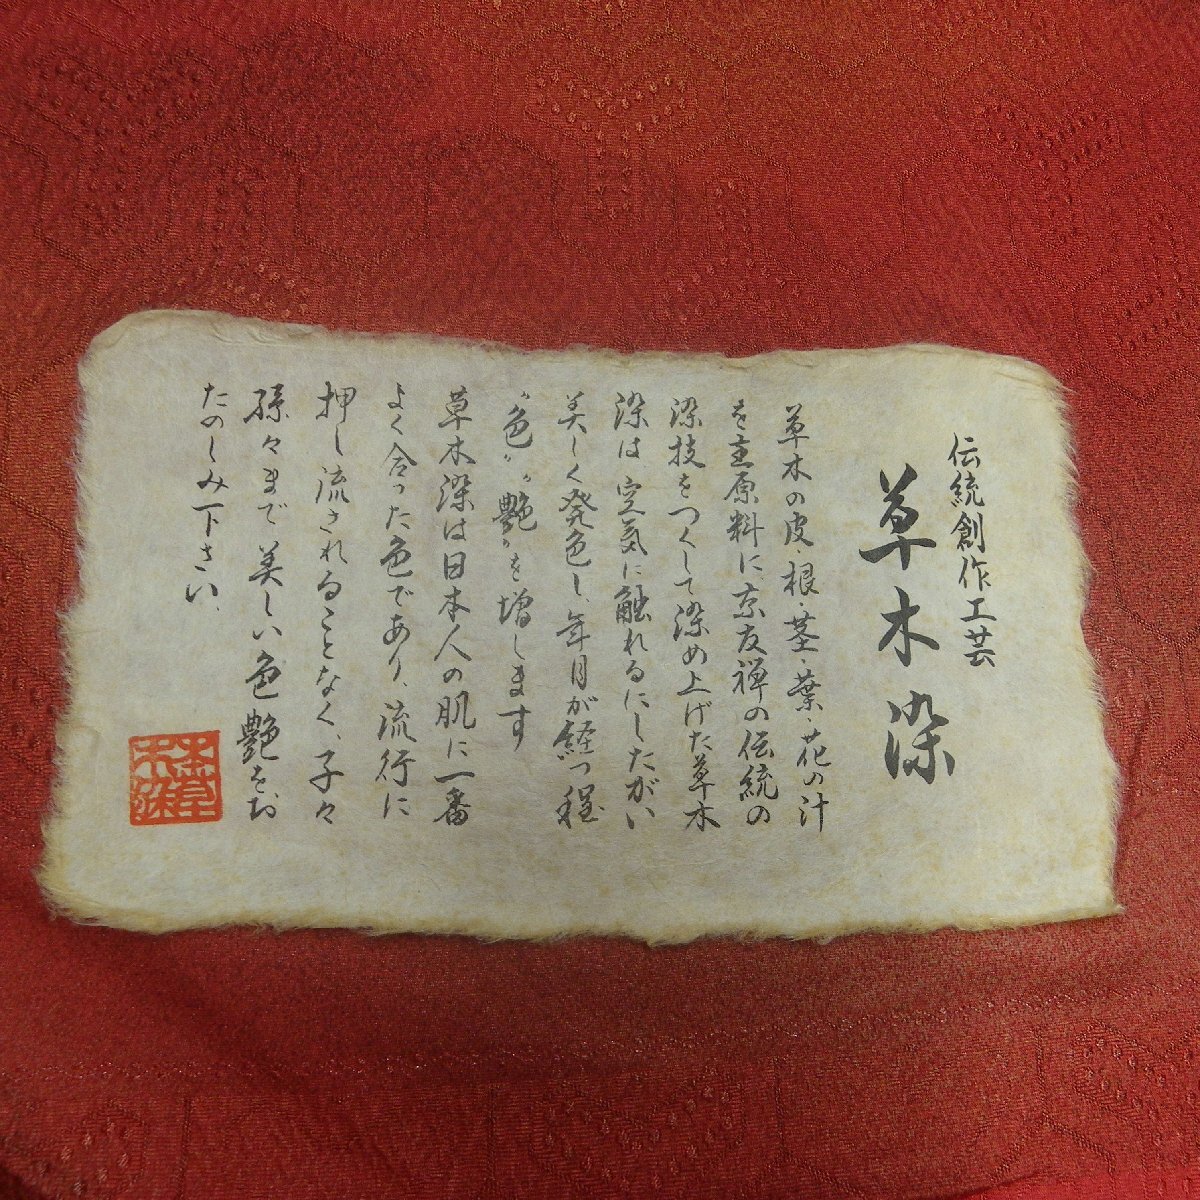 伝統創作工芸
草木染
草木の皮・根・茎・葉・花の汁
を主原料に、京友禅の伝統の
染技をつくして染め上げた草木
染は、空気に触れるにしたがい
美しく発色し、年月が経つ程
“色”“艶”を増します
草木染は日本人の肌に一番
よく合った色であり、流行に
押し流されることなく、子々
孫々まで美しい色艶をお
たのしみ下さい、